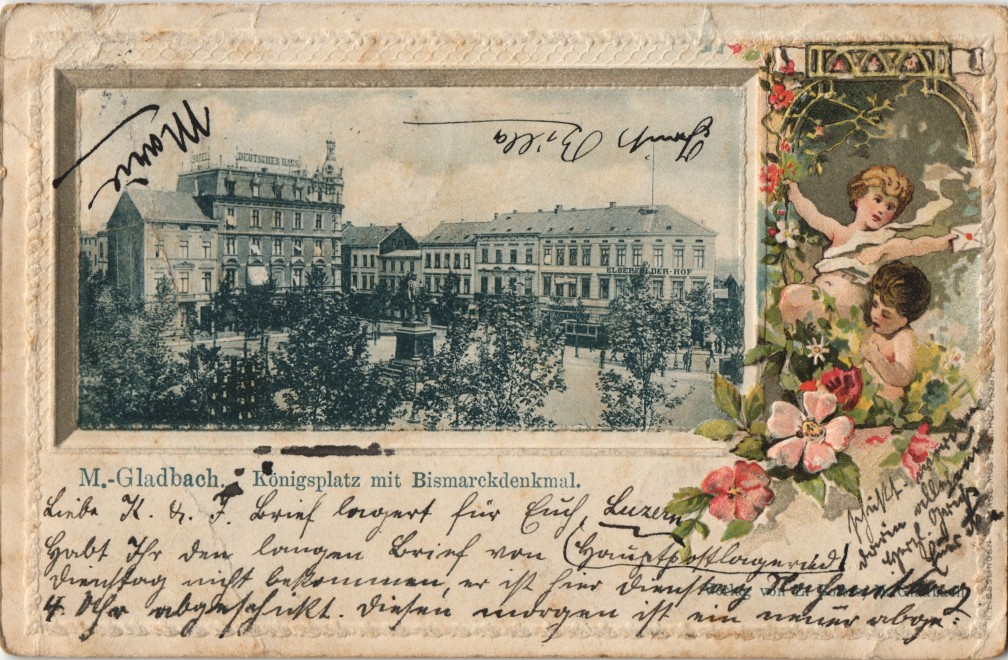 Marie
DEUTSCHES HAUS
ELBERFELDER-HOF
M.-Gladbach. Königsplatz mit Bismarckdenkmal.
Liebe K. & F. Brief lagert für Euch, Luzern
Habt Ihr den langen Brief von (Hauptpostlagernd)
Dienstag nicht bekommen, er ist hier Dienstag Nachmittag
4. Uhr abgeschikt. Diesen morgen ist ein neuer abge=
schikt